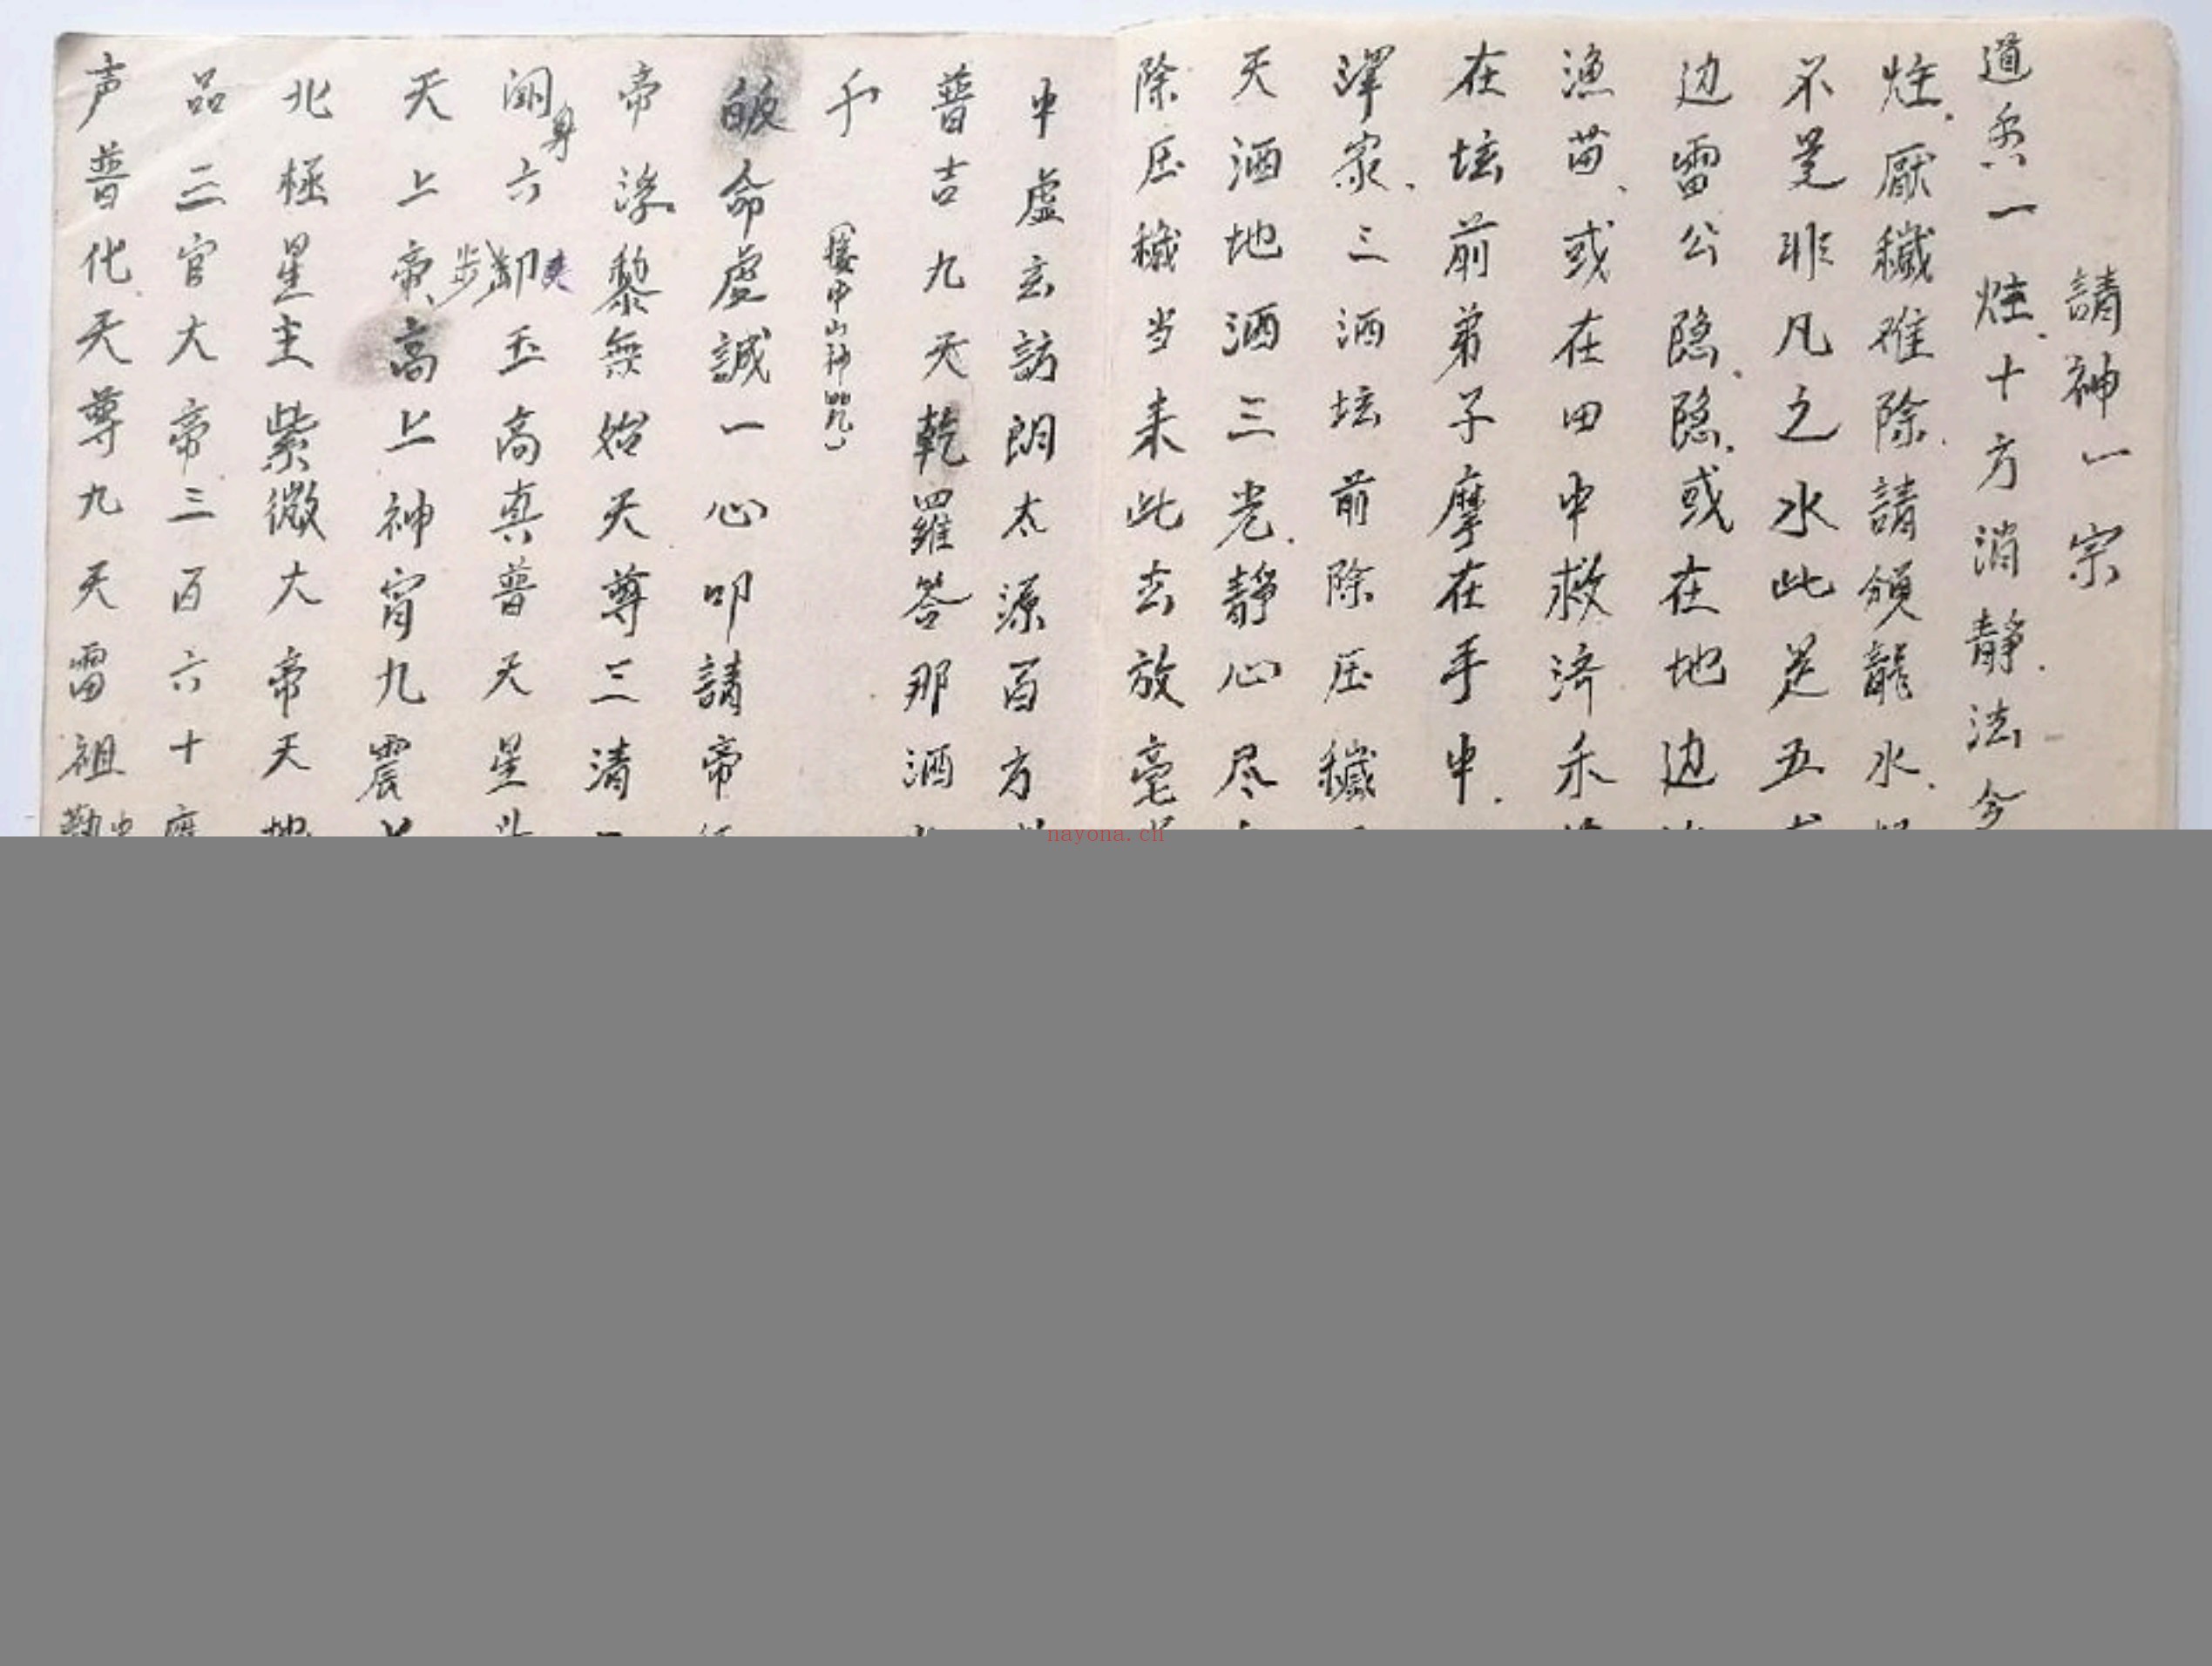 請神一宗
道香一炷十方消静法令
炷厭穢难除請領龍水
不是非凡之水此是五
边雷公隐隐或在地边
渔苗或在田中救济禾
在坛前弟子摩在手中
澤家三洒坛前除压穢
天洒地洒三光静心尽
除压穢当来此去放毫
中虚玄訪朗太源百方
普吉九天乾羅答那洒
千
(接中山神咒)
皈命虔誠一心叩請帝
帝浮黎無始天尊三清
身
六御玉高真普天星
步
天上帝高上神宵九震
北極星主紫微大帝天地
品三官大帝三百六十應
声普化天尊九天雷祖
nayona.ch